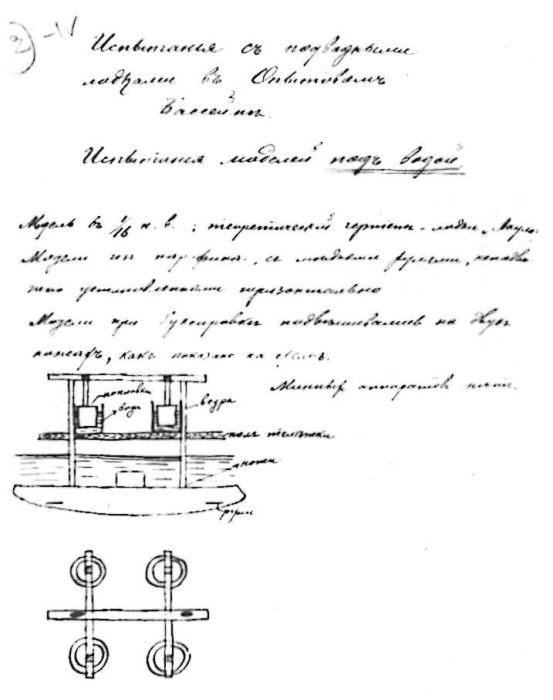 2) – IV
Испытанія съ подводными
лодками въ Опытовомъ
Бассейнѣ.
Испытанія моделей подъ водой.
Модель въ 1/16 н. в.; теоретическій чертежъ – лодки „Акула
Модели изъ парафина, съ мѣдными рулями, неподви-
жно установленными горизонтально
Модели при буксировкѣ подвѣшивались на двухъ
ножахъ, какъ показано на
аппаратовъ
поплавки
вода
ведра
полъ телѣжки
ножи
рули